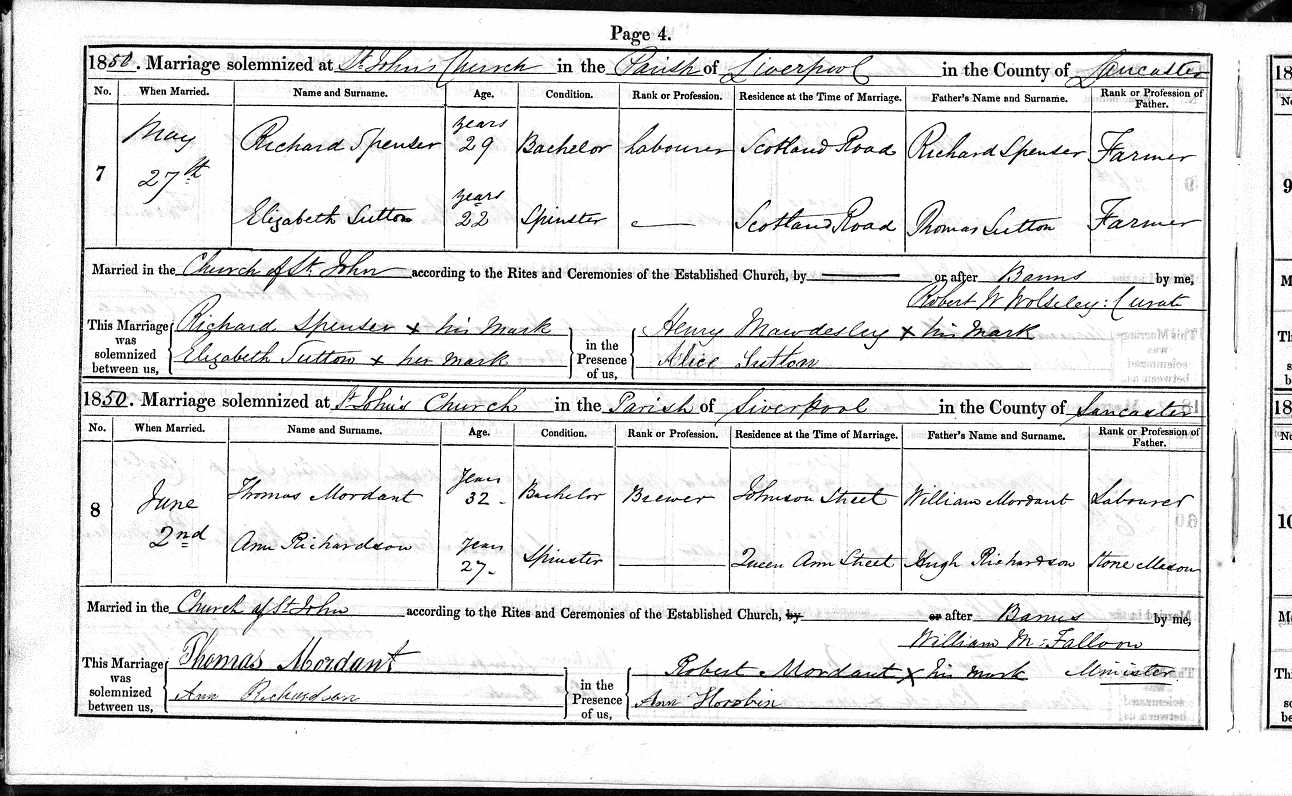 Page 4.
1850. Marriage solemnized at St. John's Church in the Parish of Liverpool in the County of Lancaster
No. When Married. Name and Surname. Age. Condition. Rank or Profession. Residence at the Time of Marriage. Father's Name and Surname. Rank or Profession of Father.
7 May 27th Richard Spenser years 29 Bachelor Labourer Scotland Road Richard Spenser Farmer
Elizabeth Sutton years 22 Spinster — Scotland Road Thomas Sutton Farmer
Married in the Church of St. John according to the Rites and Ceremonies of the Established Church, by or after Banns by me,
Robert W Wolseley: Curate
This Marriage was solemnized between us, Richard Spenser x his mark
Elizabeth Sutton x her mark
in the Presence of us, Henry Mawdesley x his mark
Alice Sutton
1850. Marriage solemnized at St. John's Church in the Parish of Liverpool in the County of Lancaster
No. When Married. Name and Surname. Age. Condition. Rank or Profession. Residence at the Time of Marriage. Father's Name and Surname. Rank or Profession of Father.
8 June 2nd Thomas Mordant Years 32 - Bachelor Brewer Johnson Street William Mordant Labourer
Ann Richardson Years 27 - Spinster — Queen Ann Street Hugh Richardson Stone Mason
Married in the Church of St John according to the Rites and Ceremonies of the Established Church, by or after Banns by me,
William Mc: Falloon
Minister
This Marriage was solemnized between us, Thomas Mordant
Ann Richardson
in the Presence of us, Robert Mordant x his mark
Ann Horobin